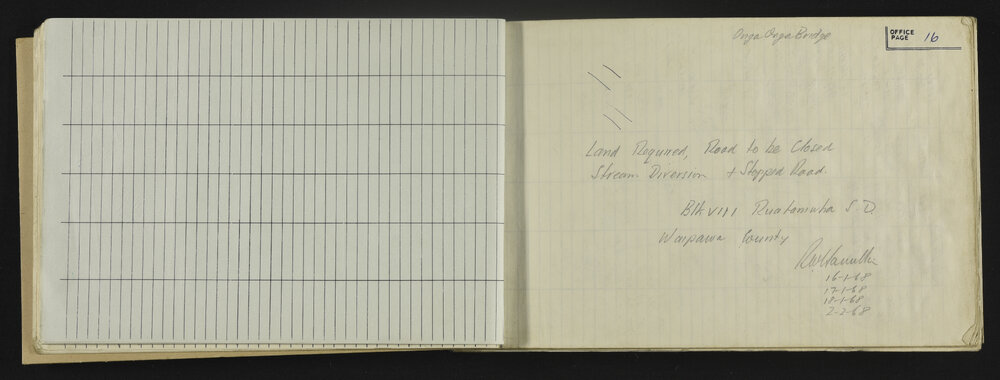 Onga Onga Bridge
OFFICE
PAGE 16
Land Required, Road to be Closed
Stream Diversion + Stopped Road.
Blk VIII Ruataniwha S.D.
Waipawa County
16-1-68
17-1-68
18-1-68
2-2-68